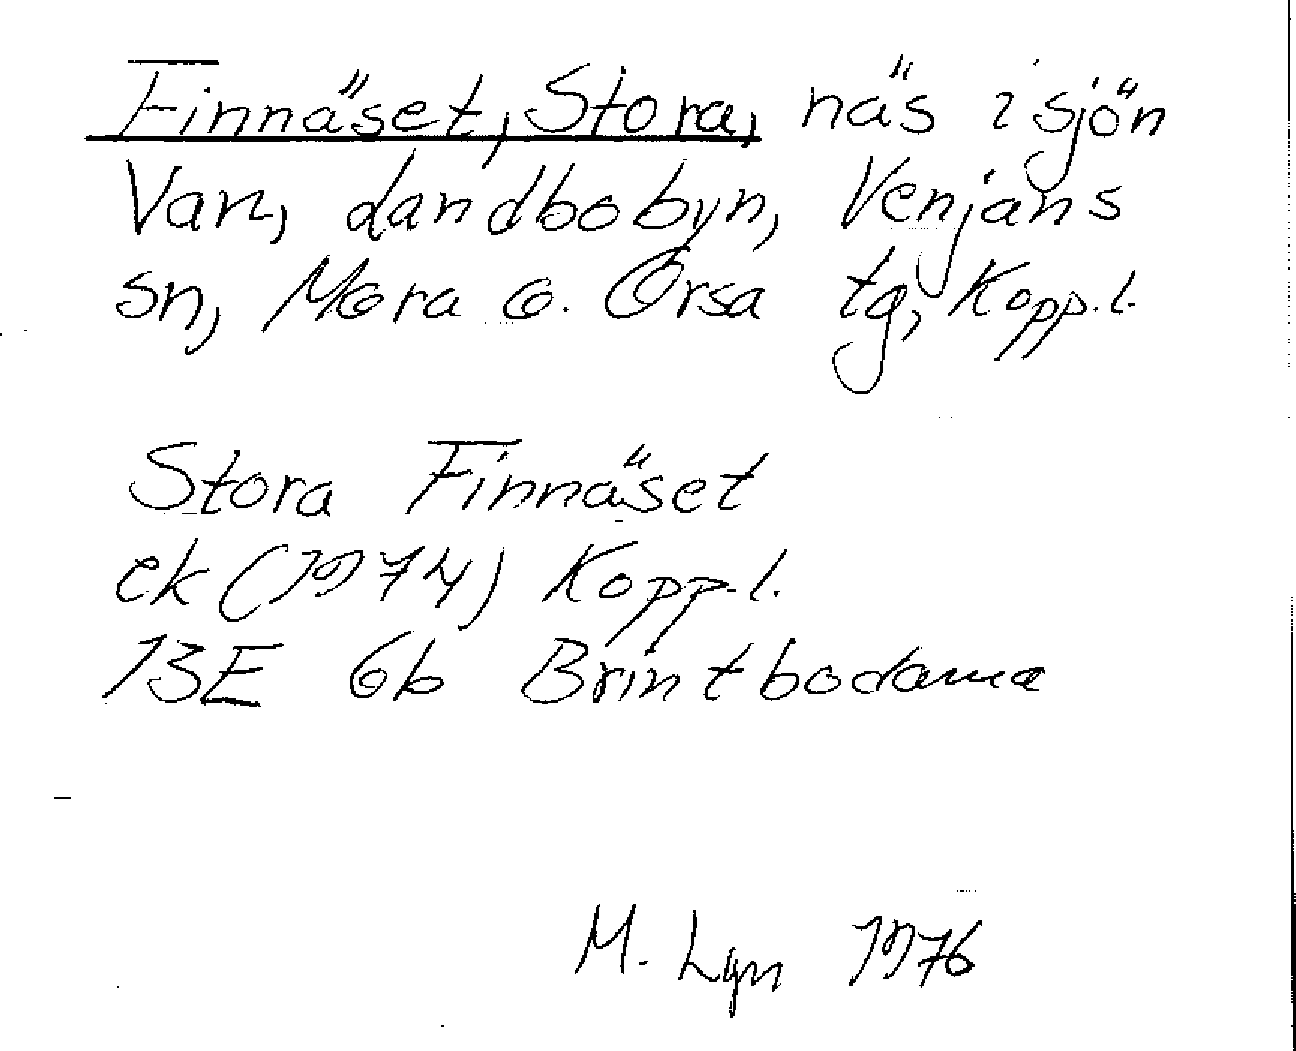 Finnäset, Stora, näs i sjön
Van, Landbobyn, Venjans
sn, Mora o. Orsa tg, Kopp.l.
Stora Finnäset
ek (1974) Kopp.l.
13E 6b Brintbodarna
M. Lgn 1976